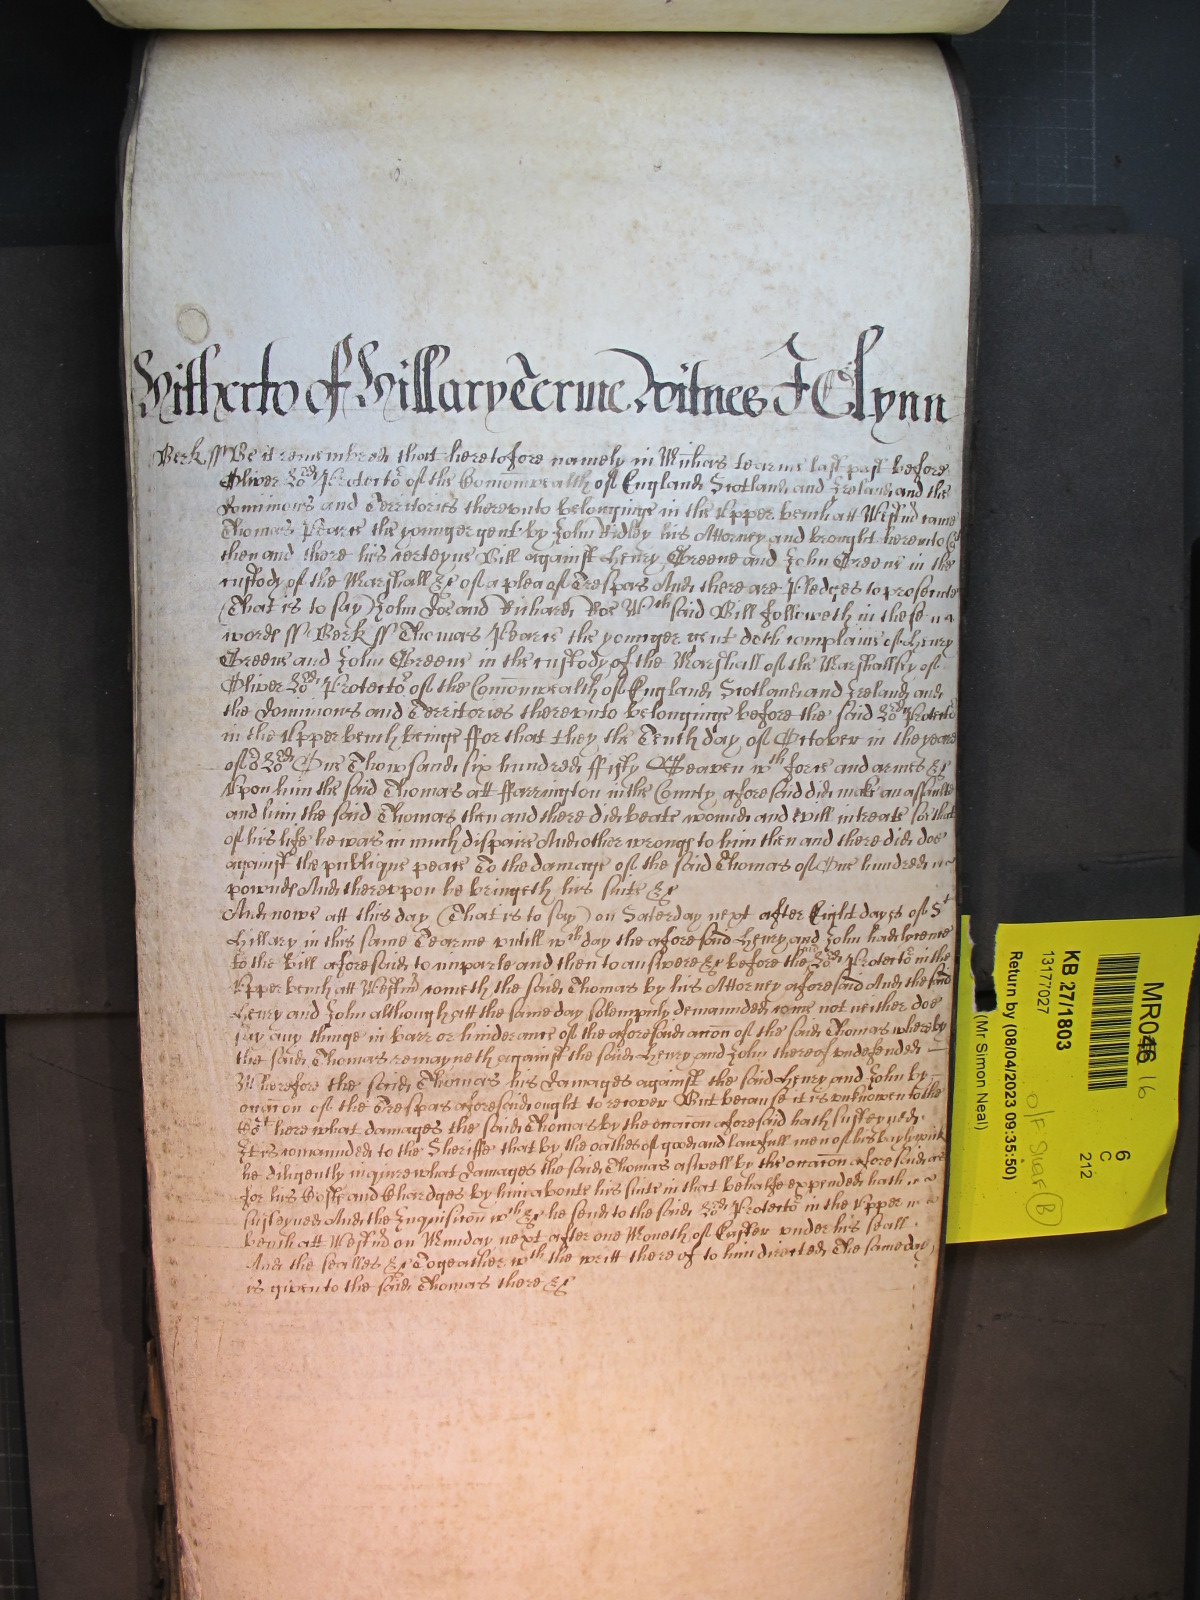 Hitherto of Hillary Terme Witnes J Glynn
Berk ss Be it remembred that heretofore namely in Michas tearme last past before
Oliver Lord Protector of the Comonwealth of England Scotland and Ireland and the
Dominions and Territories thereunto belonginge in the Upper bench att Westmr came
Thomas Pearce the younger gent by John Ridley his Attorney and brought here into Ct
then and there his certeyne Bill against Henry Greene and John Greene in the
custody of the Marshall &c of a plea of Trespas And there are Pledges to prosecute
(That is to say) John Doe and Richard Roe Wch said Bill followeth in these
words ss Berk ss Thomas Pearce the younger gent doth complaine of Henry
Greene and John Greene in the custody of the Marshall of the Marshallsey of
Oliver Lord Protector of the Comonwealth of England Scotland and Ireland and
the Dominions and Territories thereunto belonginge before the said Lord Protector
in the Upper bench beinge ffor that they the Tenth day of October in the yeare
of or Lord One Thowsand six hundred ffifty Seaven wth force and armes &c
Upon him the said Thomas att ffarrington in the County aforesaid did make an assaulte
and him the said Thomas then and there did beate wound and evill intreate soe that
of his life he was in much dispaire And other wronge to him then and there did doe
against the publique peace To the damage of the said Thomas of One hundred
pownds And thereupon he bringeth his suite &c
And nowe att this day (That is to say) on Saterday next after Eight dayes of St
Hillary in this same Tearme untill wch day the aforesaid Henry and John had licence
to the Bill aforesaid to imparle and then to answere &c before the said Lord Protector in the
Upper bench att Westmr cometh the said Thomas by his Attorney aforesaid And the said
Henry and John although att the same day solempnly demaunded come not neither doe
say any thinge in barr or hinderance of the aforesaid accon of the said Thomas whereby
the said Thomas remayneth against the said Henry and John thereof undefended
Wherefore the said Thomas his damages against the said Henry and John by
occacion of the Trespas aforesaid ought to recover But because it is unknowen to the
Cort here what damages the said Thomas by the occacion aforesaid hath susteyned
It is comaunded to the Sheriffe that by the oathes of good and lawfull men of his baylywick
he diligently inquire what damages the said Thomas aswell by the occacion aforesaid as
for his Costs and Chardges by him aboute his suite in that behalfe expended hath
susteyned And the Inquisicion wch &c he send to the said Lord Protector in the Upper
bench att Westmr on Munday next after one Moneth of Easter under his seall
And the sealles &c Togeather wth the writt thereof to him directed The same day
is given to the said Thomas there &c
MR046 16
KB 27/1803
13177027
Return by (08/04/2023 09:35:50)
(Mr Simon Neal)
6
C
212
B